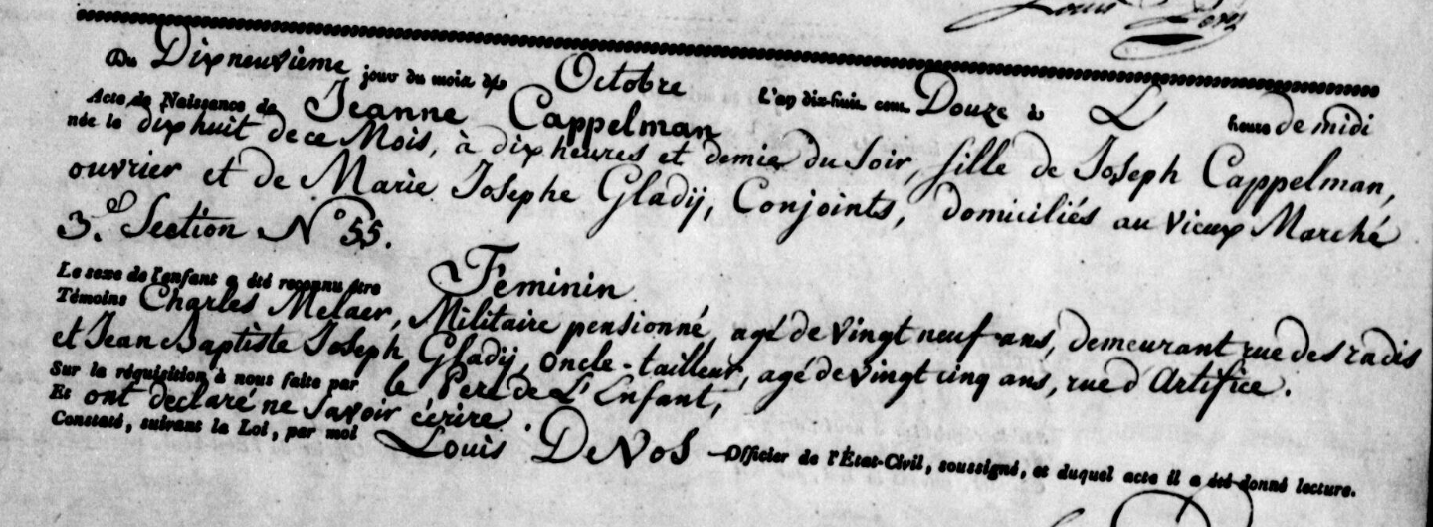 Du Dixneuvième jour du mois de Octobre L'an dix-huit cent Douze à L' heure de midi
Acte de Naissance de Jeanne Cappelman
née le dixhuit de ce Mois, à dix heures et demie du Soir, fille de Joseph Cappelman,
ouvrier et de Marie Josephe Gladij, Conjoints, domiciliés au Vieux Marché
3.e Section N° 55.
Le sexe de l'enfant a été reconnu être Féminin
Témoins Charles Melaer, Militaire pensionné, agé de vingt neuf ans, demeurant rue des radis
et Jean Baptiste Joseph Gladij, oncle-tailleur, agé de vingt cinq ans, rue d'Artifice.
Sur la réquisition à nous faite par le Pere de L'Enfant,
Et ont declaré ne Savoir écrire.
Constaté, suivant la Loi, par moi Louis De Vos Officier de l'État-Civil, soussigné, et duquel acte il a été donné lecture.